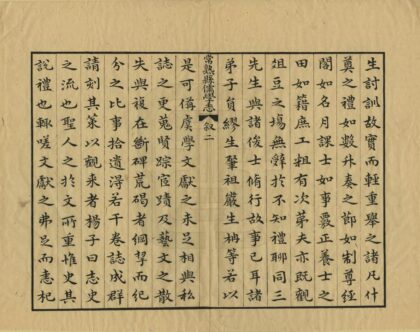 生討訓故實而輕重舉之諸凡廾
奠之禮如數舛奏之節如制尊經
閣如名月課士如事嚴正養士之
田如籍庶工粗有次第夫亦既觀
俎豆之場無辭於不知禮聊同三
先生與諸俊士脩行故事已耳諸
弟子員繆生肇祖嚴生栴等若以
常熟縣儒學志
叙二
是可備虞學文獻之未𠯁相與私
誌之更蒐賢踪宦蹟及藝文之散
失與複在斷碑荒碣者綱挈而紀
分之比事拾遺得若干卷誌成群
請刻其策以觀來者揚子曰志史
之流也聖人之於文所重惟史其
說禮也輙嗟文獻之弗𠯁而志杞